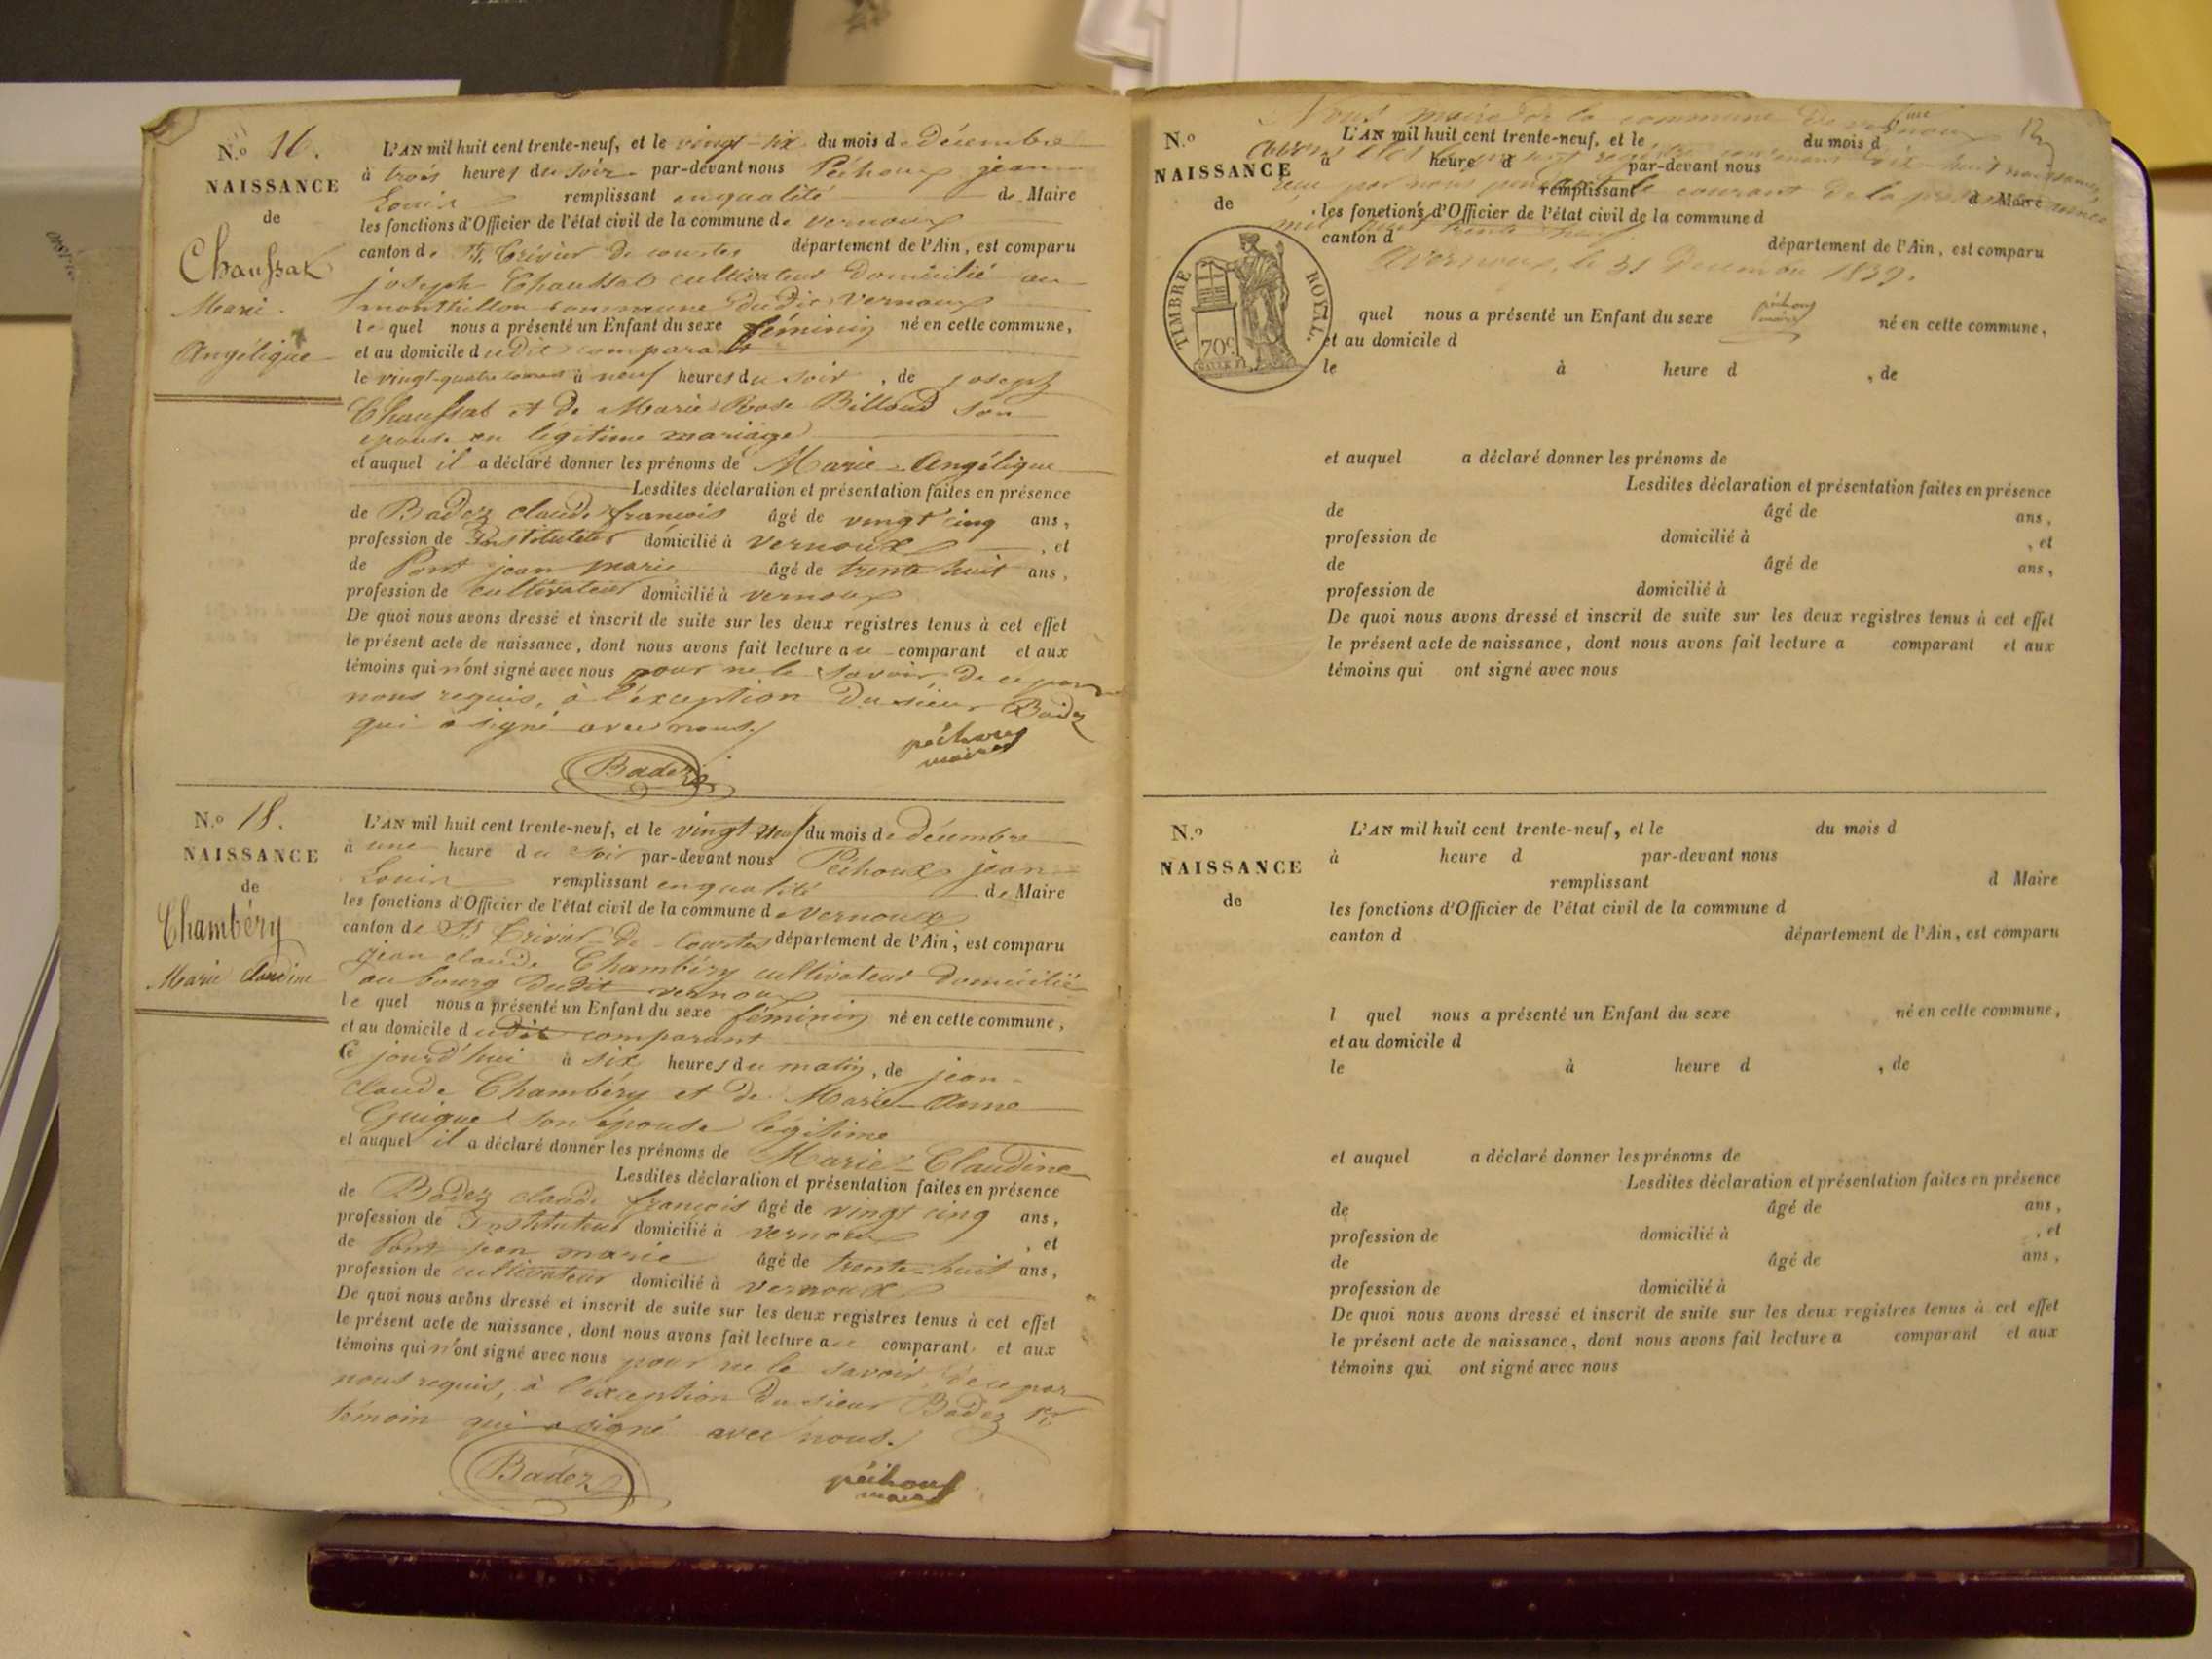 N.o 16.
NAISSANCE
de
Chaussat
Marie
Angélique
L'AN mil huit cent trente-neuf, et le vingt-six du mois de Décembre
à trois heures du soir par-devant nous Péchoux jean
Louis remplissant en qualité de Maire
les fonctions d'Officier de l'état civil de la commune de vernoux
canton de St. Trivier de courtes département de l'Ain, est comparu
joseph Chaussat cultivateur Domicilié au
monthillon commune dudit vernoux
le quel nous a présenté un Enfant du sexe féminin né en cette commune,
et au domicile dudit comparant
le vingt-quatre courant à neuf heures du soir, de joseph
Chaussat et de Marie Rose Billoud son
épouse en légitime mariage
et auquel il a déclaré donner les prénoms de Marie-Angélique
Lesdites déclaration et présentation faites en présence
de Badez claude françois âgé de vingt cinq ans,
profession de Instituteur domicilié à vernoux, et
de Pont jean marie âgé de trente huit ans,
profession de cultivateur domicilié à vernoux
De quoi nous avons dressé et inscrit de suite sur les deux registres tenus à cet effet
le présent acte de naissance, dont nous avons fait lecture au comparant et aux
témoins qui n'ont signé avec nous pour ne le savoir, de ce par
nous requis, à l'exception du sieur Badez
qui a signé avec nous
péchoux
maire
Badez
N.o 18.
NAISSANCE
de
Chambéry
Marie Claudine
L'AN mil huit cent trente-neuf, et le vingt neuf du mois de décembre
à une heure du soir par-devant nous Péchoux jean
Louis remplissant en qualité de Maire
les fonctions d'Officier de l'état civil de la commune de vernoux
canton de St. Trivier de Courtes département de l'Ain, est comparu
jean claude Chambéry cultivateur Domicilié
au bourg dudit vernoux
le quel nous a présenté un Enfant du sexe féminin né en cette commune,
et au domicile dudit comparant
Ce jourd'hui à six heures du matin, de jean
claude Chambéry et de Marie-Anne
Guigue son épouse légitime
et auquel il a déclaré donner les prénoms de Marie-Claudine
Lesdites déclaration et présentation faites en présence
de Badez claude françois âgé de vingt cinq ans,
profession de Instituteur domicilié à vernoux, et
de Pont jean marie âgé de trente-huit ans,
profession de cultivateur domicilié à vernoux
De quoi nous avons dressé et inscrit de suite sur les deux registres tenus à cet effet
le présent acte de naissance, dont nous avons fait lecture au comparant et aux
témoins qui n'ont signé avec nous pour ne le savoir de ce par
nous requis, à l'exception du sieur Badez 1er
témoin qui a signé avec nous.
Badez
péchoux
maire
Nous maire de la commune de vernoux
N.o
NAISSANCE
de
L'AN mil huit cent trente-neuf, et le du mois d
à heure d par-devant nous
remplissant d Maire
les fonctions d'Officier de l'état civil de la commune d
canton d département de l'Ain, est comparu
A vernoux, le 31 Decembre 1839.
péchoux
maire
TIMBRE ROYAL.
70c
quel nous a présenté un Enfant du sexe né en cette commune,
et au domicile d
le à heure d , de
et auquel a déclaré donner les prénoms de
Lesdites déclaration et présentation faites en présence
de âgé de ans,
profession de domicilié à , et
de âgé de ans,
profession de domicilié à
De quoi nous avons dressé et inscrit de suite sur les deux registres tenus à cet effet
le présent acte de naissance, dont nous avons fait lecture a comparant et aux
témoins qui ont signé avec nous
N.o
NAISSANCE
de
L'AN mil huit cent trente-neuf, et le du mois d
à heure d par-devant nous
remplissant d Maire
les fonctions d'Officier de l'état civil de la commune d
canton d département de l'Ain, est comparu
l quel nous a présenté un Enfant du sexe né en cette commune,
et au domicile d
le à heure d , de
et auquel a déclaré donner les prénoms de
Lesdites déclaration et présentation faites en présence
de âgé de ans,
profession de domicilié à , et
de âgé de ans,
profession de domicilié à
De quoi nous avons dressé et inscrit de suite sur les deux registres tenus à cet effet
le présent acte de naissance, dont nous avons fait lecture a comparant et aux
témoins qui ont signé avec nous